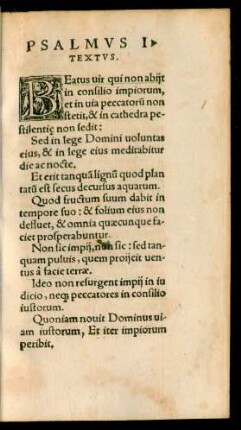 PSALMVS I
TEXTVS.
BEatus uir qui non abijt
in consilio impiorum,
et in uia peccatorũ non
stetit, & in cathedra pe-
stilentię non sedit:
Sed in lege Domini uoluntas
eius, & in lege eius meditabitur
die ac nocte.
Et erit tanquã lignũ quod plan
tatũ est secus decursus aquarum.
Quod fructum suum dabit in
tempore suo: & folium eius non
defluet, & omnia quæcunque fa-
ciet prosperabuntur.
Non sic impij, non sic: sed tan-
quam puluis, quem proijcit uen-
tus à facie terræ.
Ideo non resurgent impij in iu
dicio, neq; peccatores in consilio
iustorum.
Quoniam nouit Dominus ui-
am iustorum, Et iter impiorum
peribit.